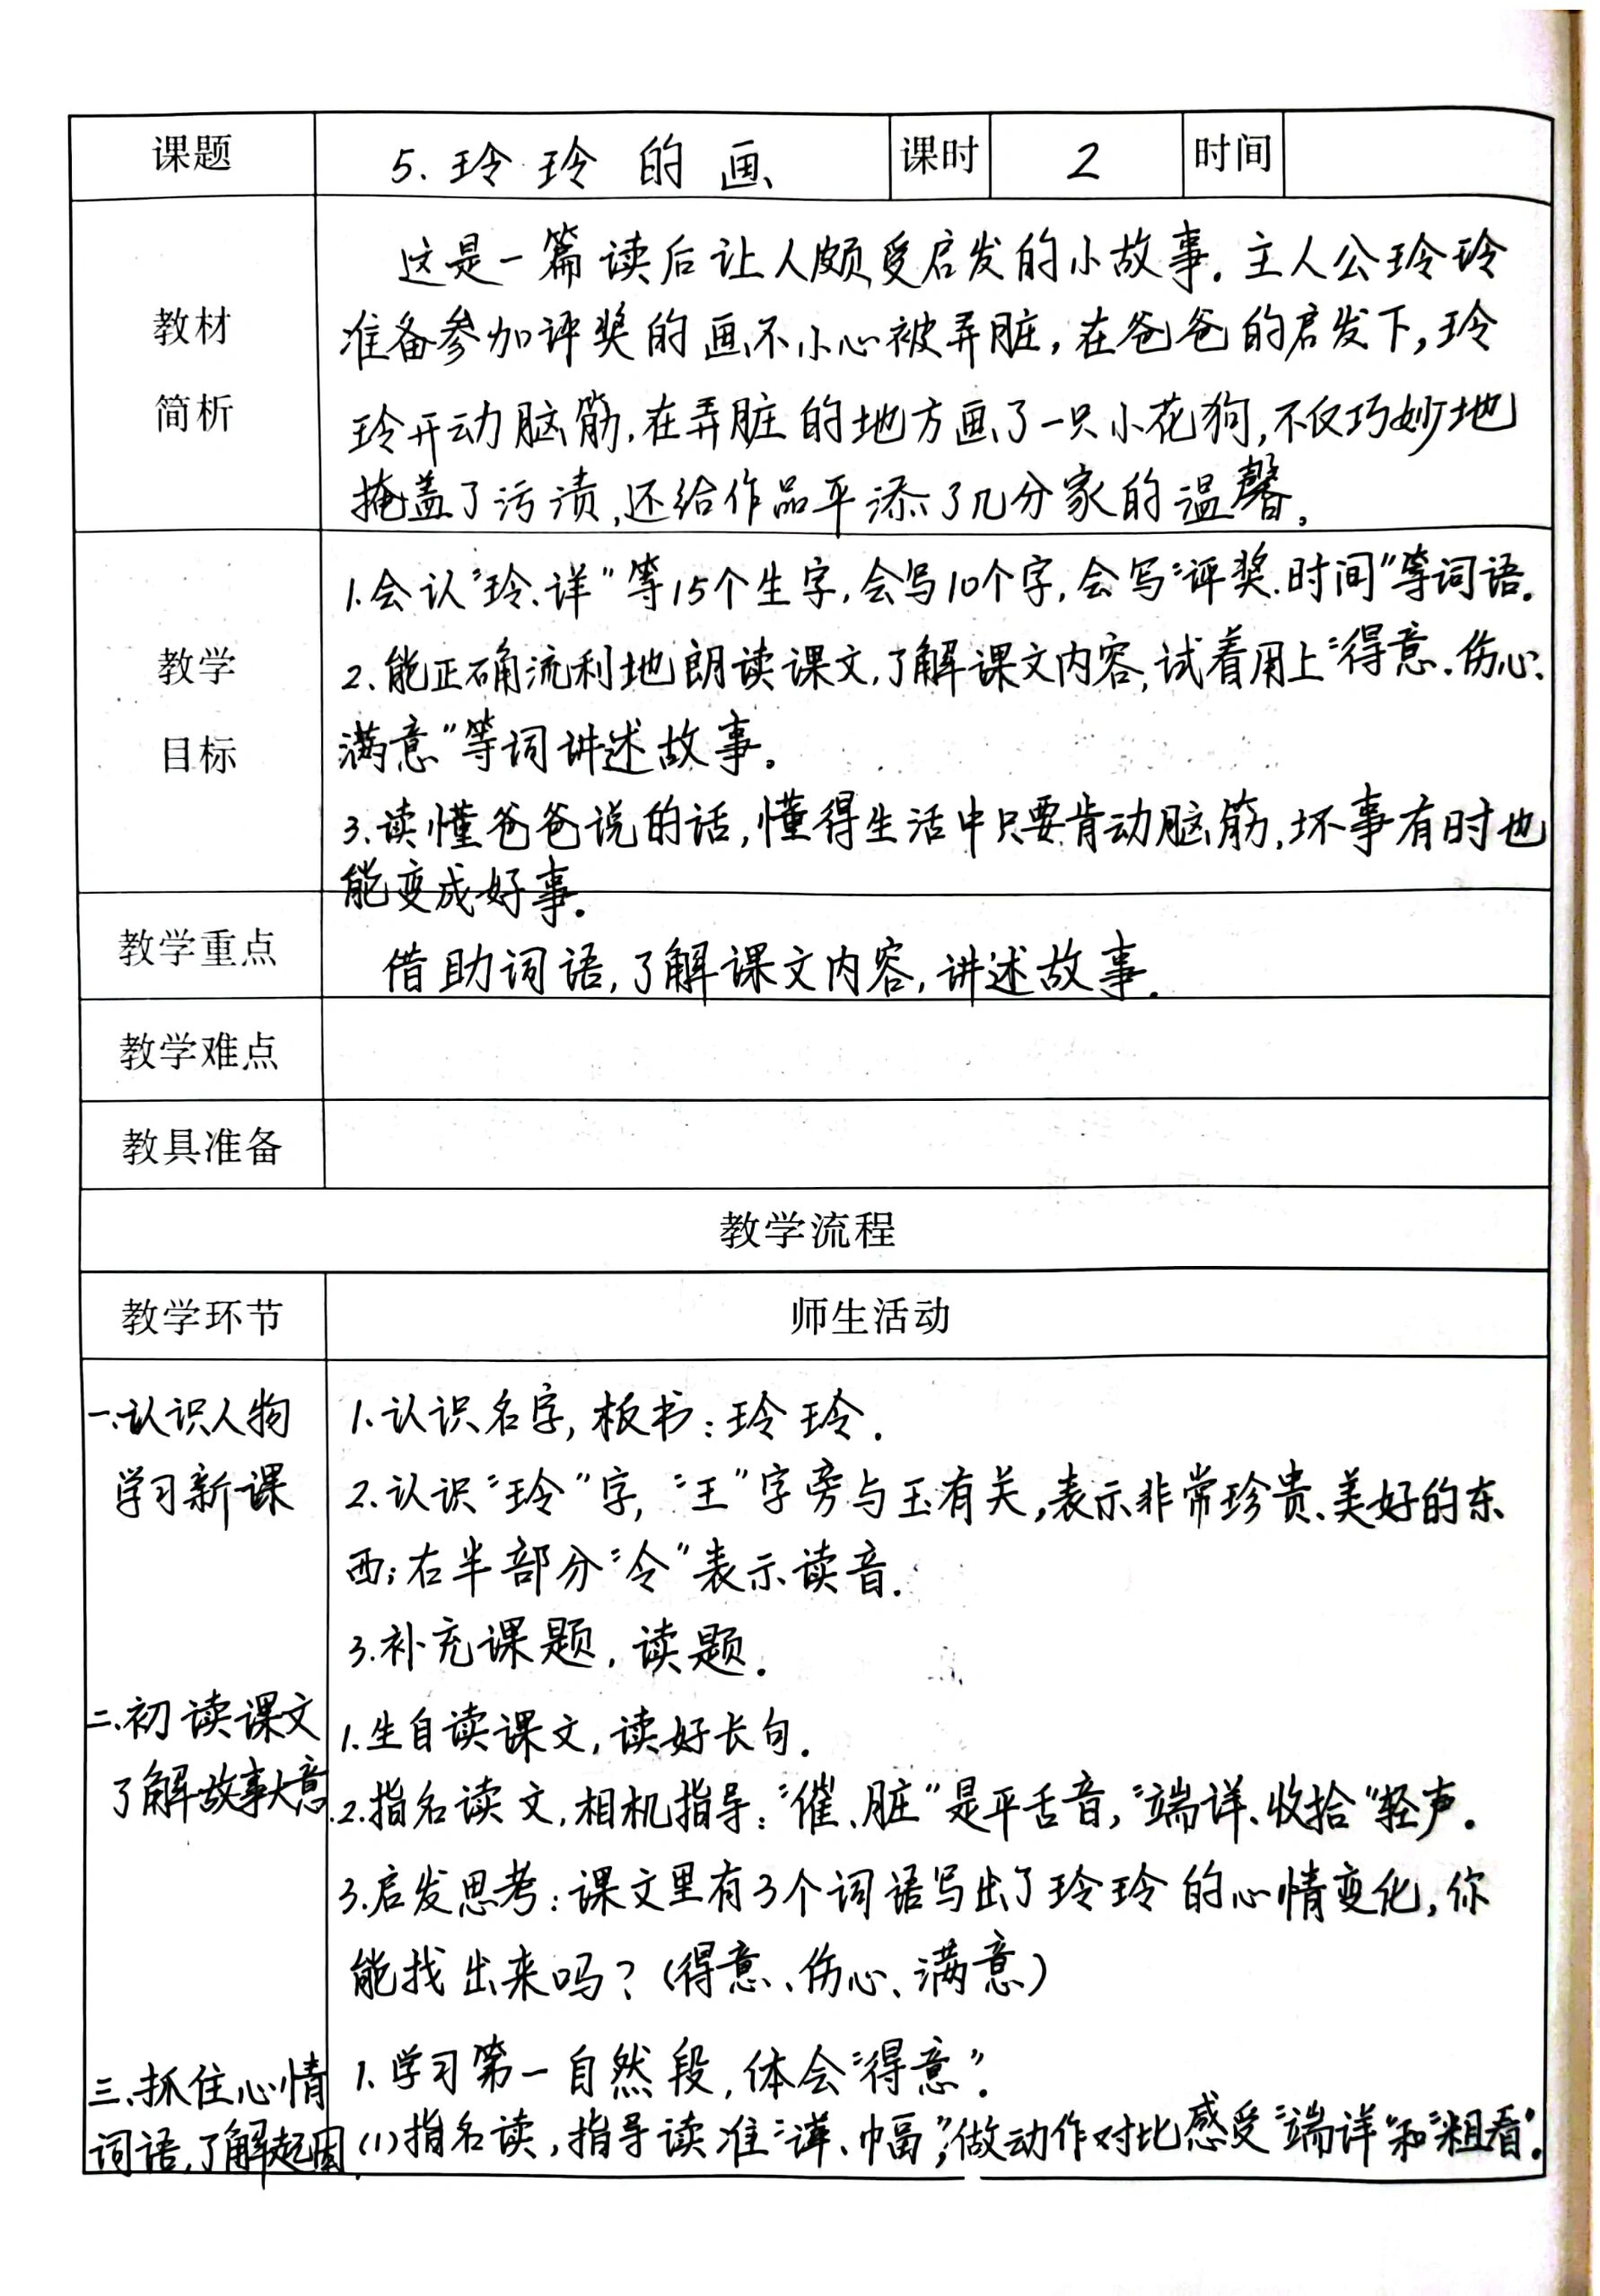 课题 5.玲玲的画 课时 2 时间
这是一篇读后让人颇受启发的小故事.主人公玲玲
教材 准备参加评奖的画不小心被弄脏,在爸爸的启发下,玲
简析 玲开动脑筋,在弄脏的地方画了一只小花狗,不仅巧妙地
掩盖了污渍,还给作品平添了几分家的温馨。
1.会认“玲、详”等15个生字,会写10个字,会写“评奖、时间”等词语.
教学 2、能正确流利地朗读课文,了解课文内容,试着用上“得意、伤心、
目标 满意”等词讲述故事。
3、读懂爸爸说的话,懂得生活中只要肯动脑筋,坏事有时也
能变成好事.
教学重点 借助词语,了解课文内容,讲述故事.
教学难点
教具准备
教学流程
教学环节 师生活动
一.认识人物 1、认识名字,板书:玲玲.
学习新课 2、认识“玲”字,“王”字旁与玉有关,表示非常珍贵、美好的东
西;右半部分“令”表示读音.
3.补充课题,读题.
二.初读课文 1.生自读课文,读好长句.
了解故事大意. 2.指名读文,相机指导:“催、脏”是平舌音,“端详、收拾”轻声.
3.启发思考:课文里有3个词语写出了玲玲的心情变化,你
能找出来吗?(得意、伤心、满意)
三.抓住心情 1.学习第一自然段,体会“得意”.
词语,了解起因. (1)指名读,指导读准“详、幅”,做动作对比感受“端详”和“粗看”.